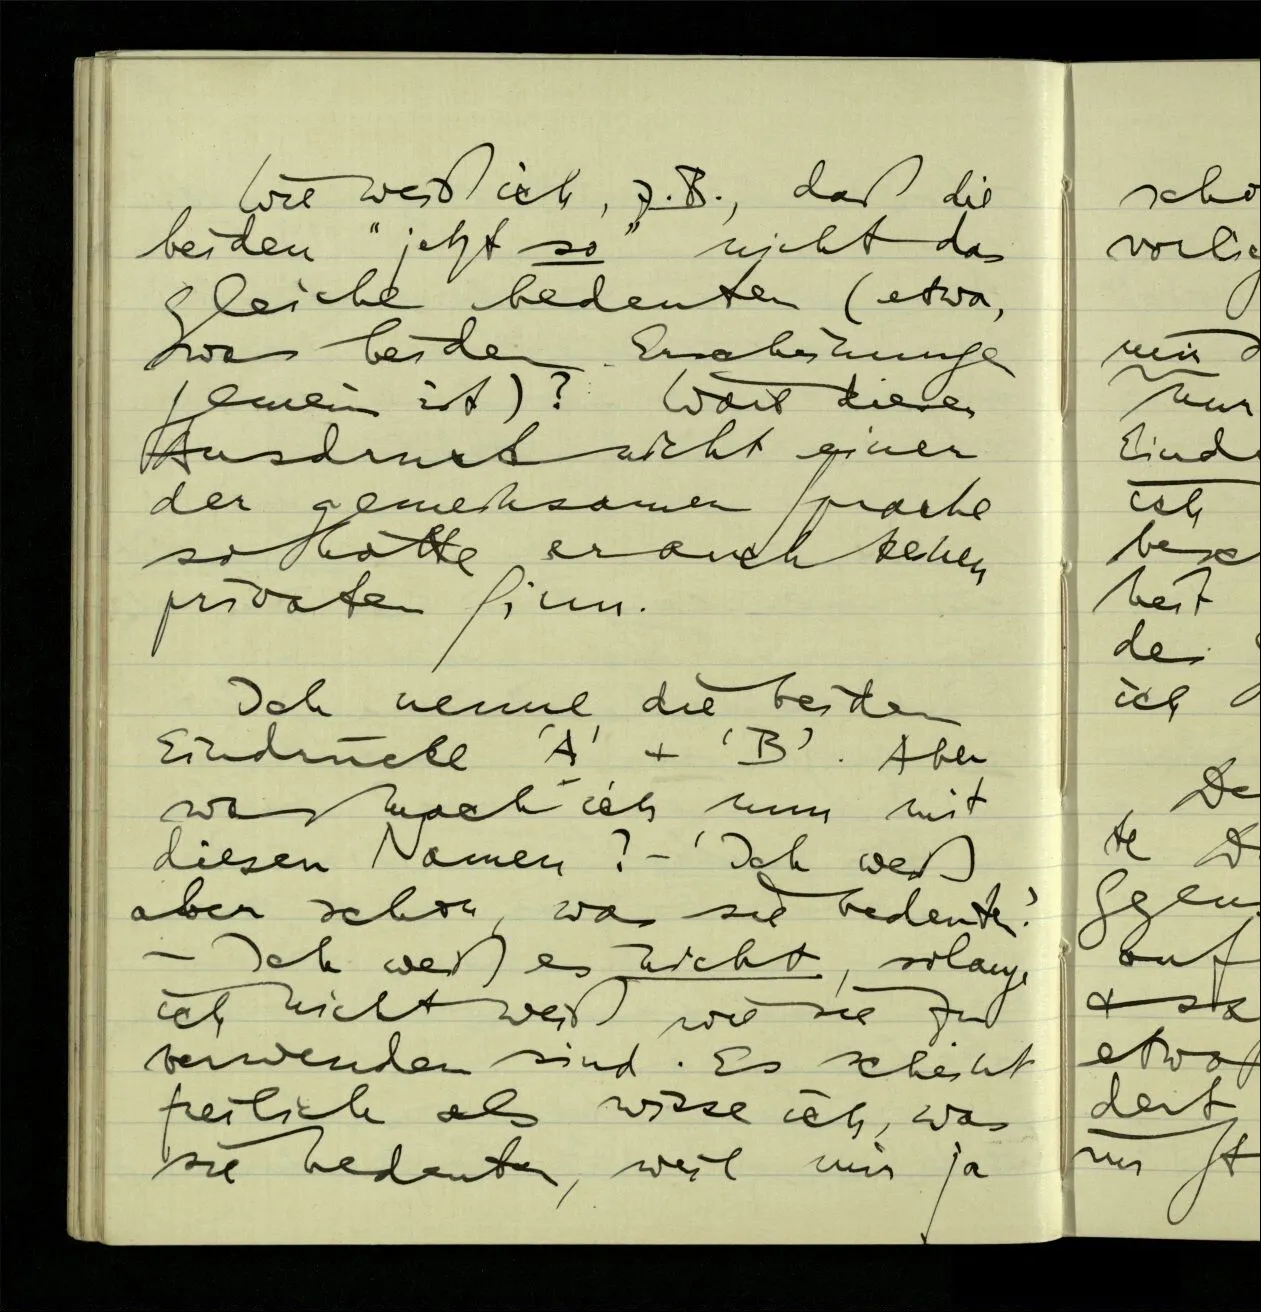 Wie weiß ich, z.B., daß die
beiden "jetzt so" nicht das
gleiche bedeuten (etwa,
was beiden Erscheinunge
gemein ist)? Wäre dieser
Ausdruck nicht einer
der gemeinsamen Sprache
so hätte er auch keinen
privaten Sinn.
Ich nenne die beiden
Eindrücke 'A' + 'B'. Aber
was mach ich nun mit
diesen Namen? – 'Ich weiß
aber schon, was sie bedeuten.'
– Ich weiß es nicht, solange
ich nicht weiß wie sie zu
verwenden sind. Es scheint
freilich als wisse ich, was
sie bedeuten, weil mir ja
scho
vorlie
mir d
nur
Eind
ich
besc
heit
des
ich
De
te D
Gegen
auf
+ sa
etwa
dert